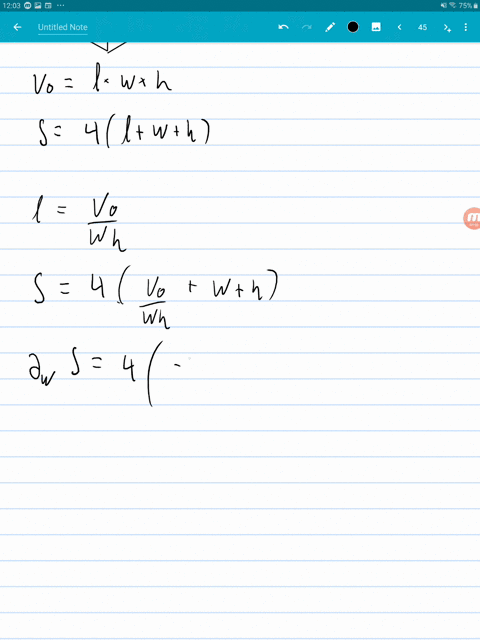 12:03 75%
Untitled Note 45
V₀ = l × w × h
S = 4 ( l + w + h )
l = V₀ / wh
S = 4 ( V₀ / wh + w + h )
∂w S = 4 ( -